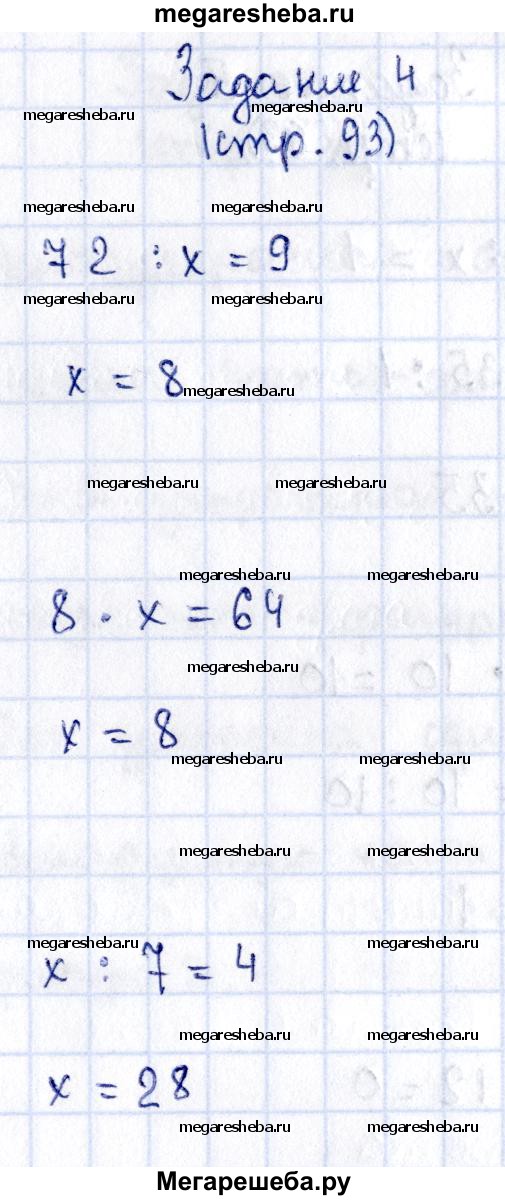 megaresheba.ru
Задание 4
megaresheba.ru megaresheba.ru
(стр. 93)
megaresheba.ru megaresheba.ru
72 : x = 9
megaresheba.ru megaresheba.ru
x = 8
megaresheba.ru
megaresheba.ru megaresheba.ru
megaresheba.ru megaresheba.ru
8 · x = 64
megaresheba.ru
x = 8
megaresheba.ru megaresheba.ru
megaresheba.ru megaresheba.ru
megaresheba.ru megaresheba.ru
x : 7 = 4
megaresheba.ru megaresheba.ru
x = 28
megaresheba.ru megaresheba.ru
Мегарешеба.ру